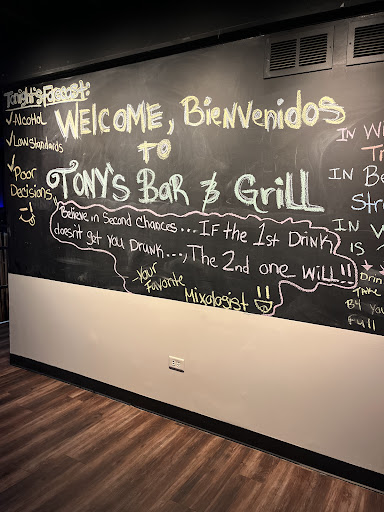 Tonight's Forecast:
✓ Alcohol
✓ Low standards
✓ Poor
Decisions
WELCOME, Bienvenidos
TO
TONY'S BAR & GRiLL
"Believe in Second Chances... IF the 1st Drink
doesn't get you Drunk..., The 2nd one will!!
-Your
Favorite
Mixologist
IN
IN
IN
IS
Take
By You
Full